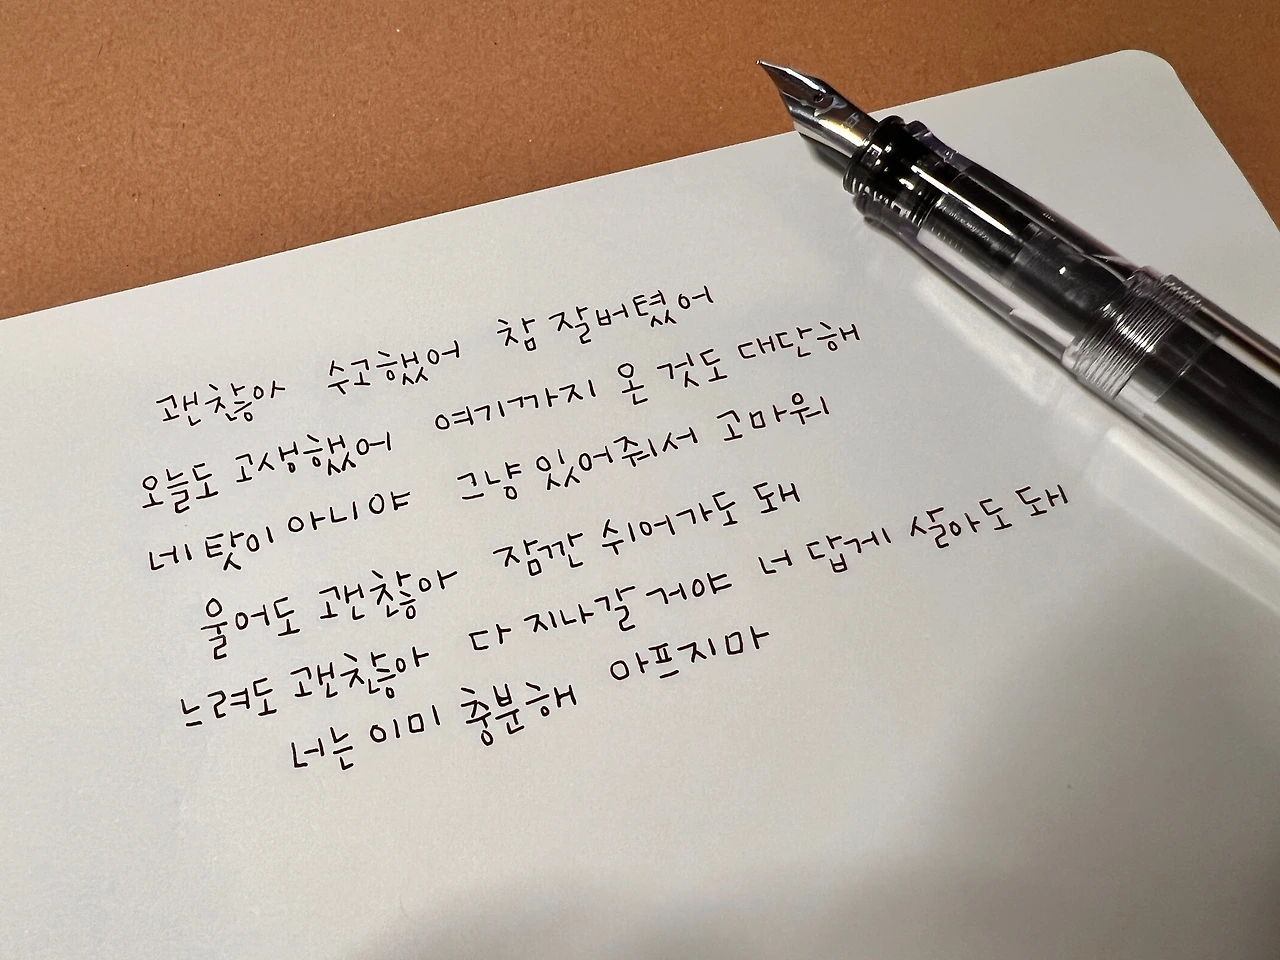 괜찮아 수고했어 참 잘버텼어
오늘도 고생했어 여기까지 온 것도 대단해
네 탓이 아니야 그냥 있어줘서 고마워
울어도 괜찮아 잠깐 쉬어가도 돼
느려도 괜찮아 다 지나갈 거야 너 답게 살아도 돼
너는 이미 충분해 아프지마